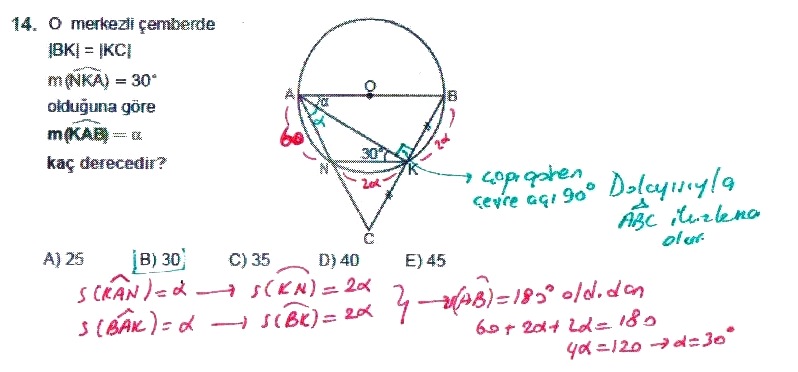 14. O merkezli çemberde
|BK| = |KC|
m(NKA) = 30°
olduğuna göre
m(KAB) = α
kaç derecedir?
A
O
B
α
α
60
30°
N
K
2α
2α
C
çapı gören
çevre açı 90°
Dolayısıyla
ABC ikizkena
olur.
A) 25 B) 30 C) 35 D) 40 E) 45
s(KAN) = α → s(KN) = 2α
s(BAK) = α → s(BK) = 2α
(AB) = 180° old.dan
60 + 2α + 2α = 180
4α = 120 → α = 30°